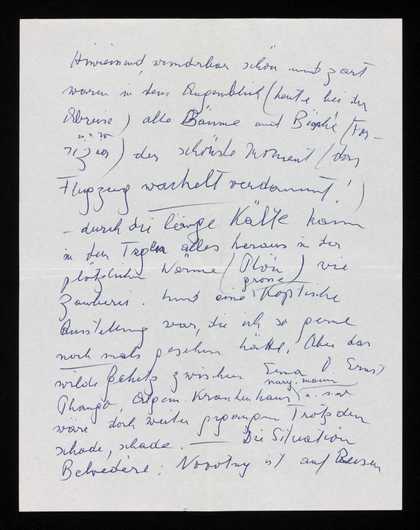 Hinreissend, wunderbar schön und zart
waren in dem Augenblick (heute bei der
Abreise) alle Bäume und Büsche (For-
sizien) der schönste Moment (das
Flugzeug wackelt verdammt!)
– durch die lange Kälte kam
in den Tagen alles heraus in der
plötzlichen Wärme (Föhn) wie
Zauberei. Und eine grosse Koptische
Ausstellung war, die ich so gerne
noch mals gesehen hätte. Aber das
wilde zwischen Ernst
Krankenhaus u. s. w.
wäre doch weiter gegangen Trotzdem
schade, schade. — Die Situation
Belvedère: Novotny ist auf Reisen